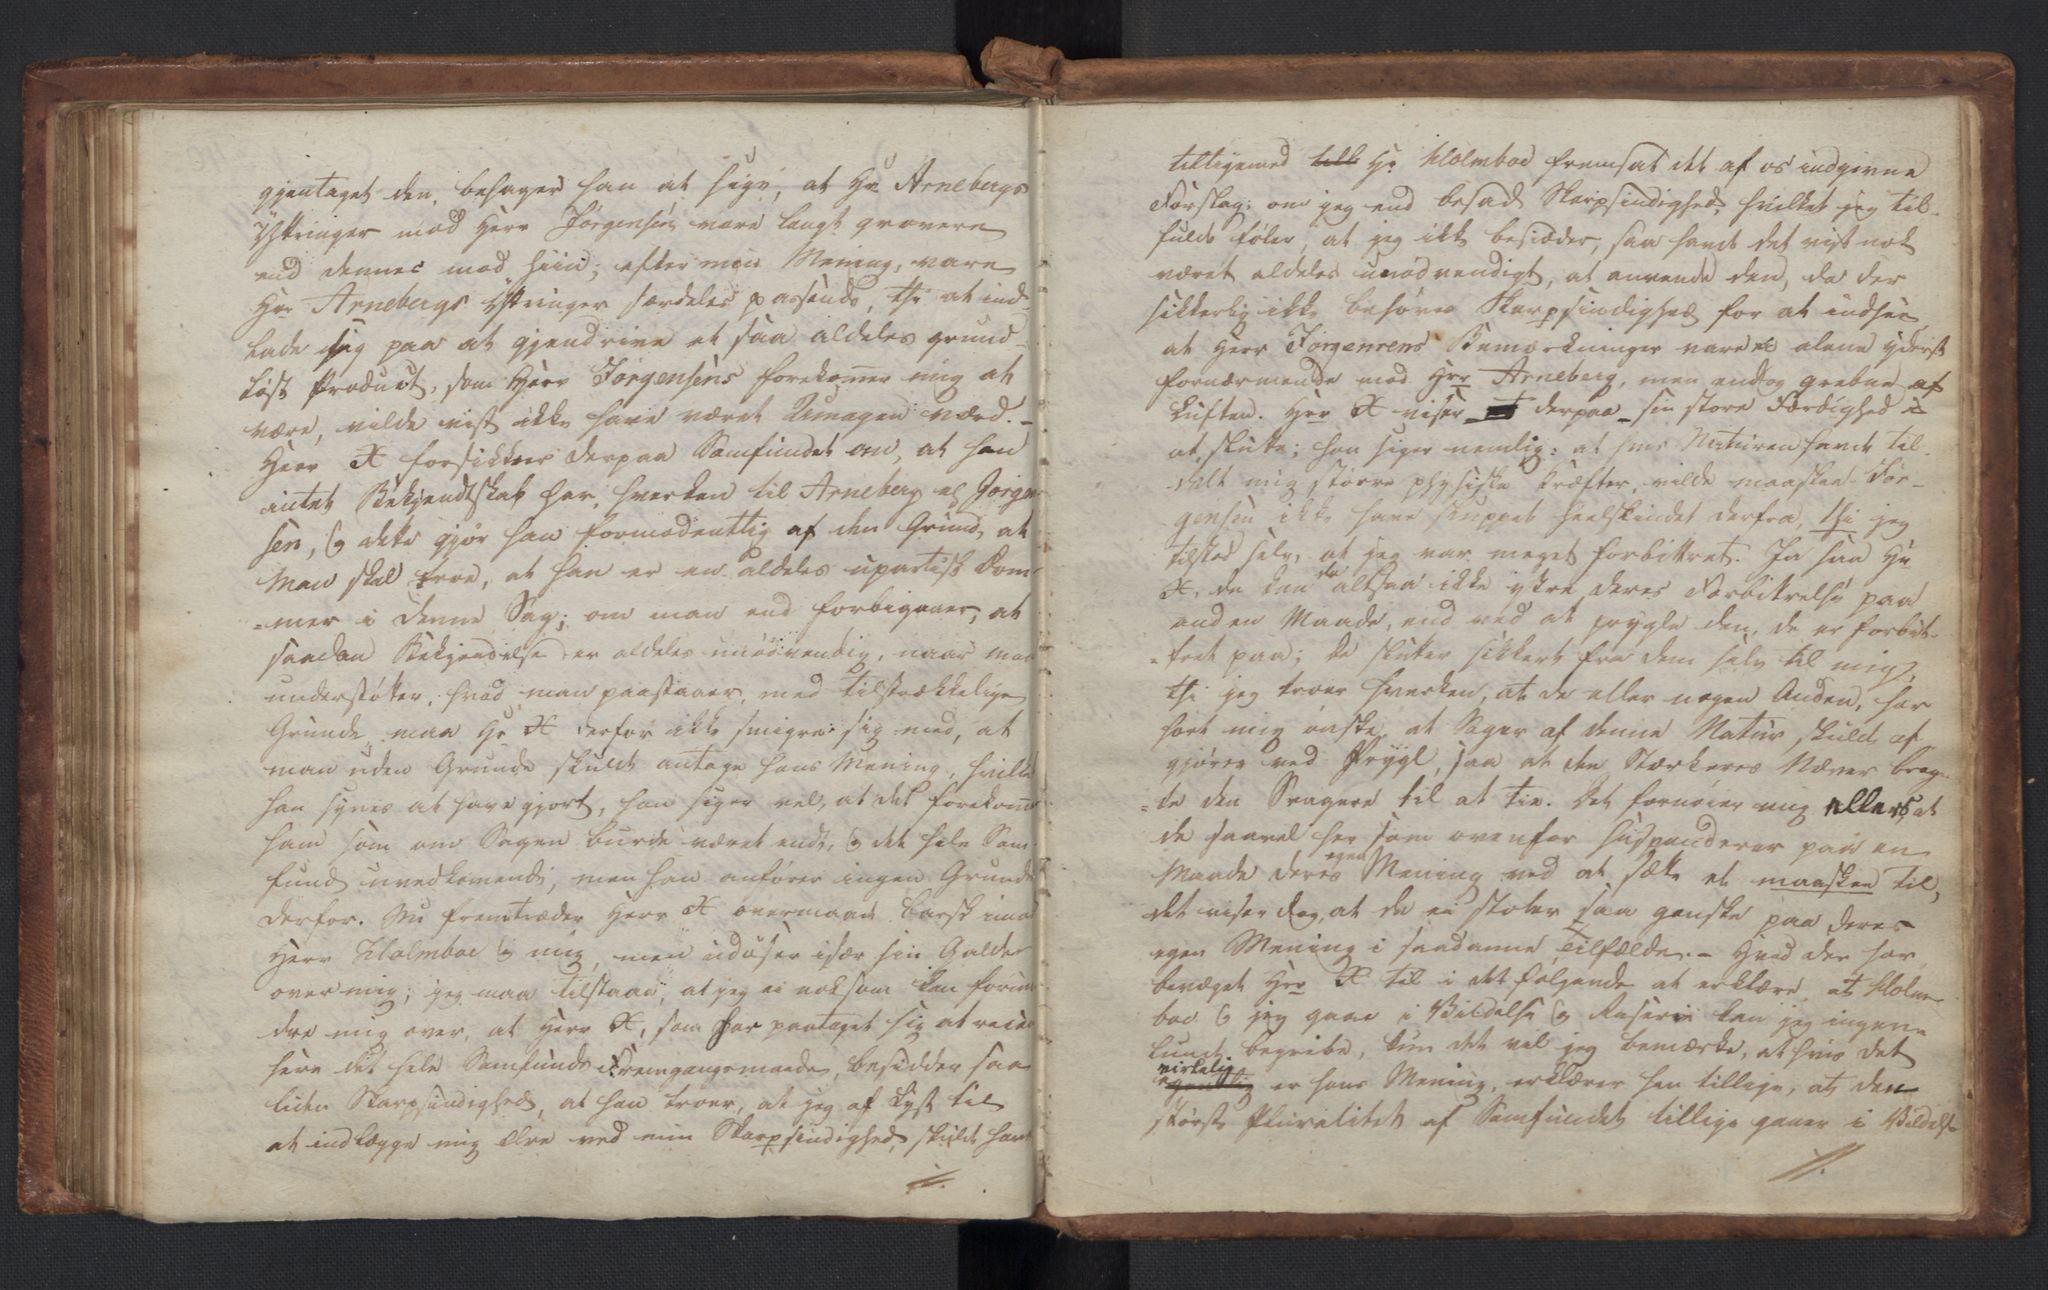 gjentaget den, behager han at sige, at Hr Arnebergs
Yttringer mod Herr Jørgensen vare langt grovere
end dennes mod hiin; efter min Mening, vare
Hrr Arnebergs Yttringer særdeles passende, thi at ind-
lade sig paa at gjendrive et saa aldeles grund-
løst Product, som Herr Jørgensens forekommer mig at
være, vilde vist ikke have været Umagen værd. -
Herr X forsikkrer derpaa Samfundet om, at han
intet Bekjendtskab har, hverken til Arneberg el Jørgen
sen, og dette gjør han formodentlig af den Grund, at
Man skal troe, at han er en aldeles upartisk Dom-
=mer i denne Sag; om man end forbigaaer, at
saadan Bekjendelse er aldeles unødvendig, naar man
understøtter, hvad man paastaaer, med tilstrækkelige
Grunde, maa Hr X derfor ikke smigre sig med, at
man uden Grunde skulde antage hans Mening, hvilket
han synes at have gjort, han siger vel, at det forekommer
ham som om Sagen burde været endt, og det hele Sam
fund uvedkommende, men han anfører ingen Grunde
derfor. Nu fremtræder Herr X overmaade barsk imod
Herr Holmboe og mig, men udøser især sin Galde
over mig; jeg maa tilstaae, at jeg ei noksom kan forun
dre mig over, at Herr X, som har paataget sig at recen
sere det hele Samfunds Fremgangsmaade, besidder saa
liden Skarpsindighed, at han troer, at jeg af Lyst til
at indlægge mig Ære ved min Skarpsindighed, skulde have
//.
tilligemed Hr Holmboe fremsat det af os indgivne
Forslag; om jeg end besad Skarpsindighed, hvilket jeg til-
fulde føler, at jeg ikke besidder, saa havde det vist nok
været aldeles unødvendigt, at anvende den, da der
sikkerlig ikke behøves Skarpsindighed for at indsee
at Herr Jørgensens Bemærkninger vare ei alene yderst
fornærmende mod Hrr Arneberg, men endog grebne af
Luften. Herr X viser derpaa sin store Færdighed i
at slutte; han siger nemlig: at hvis Naturen havde til-
delt mig større physiske Kræfter, vilde maaskee Jør-
gensen ikke have sluppet heelskindet derfra, thi jeg
tilstod selv, at jeg var meget forbittret. Ja saa Hr
X, de kan da altsaa ikke yttre deres Forbittrelse paa
anden Maade, end ved at prygle den, de er forbit-
=tret paa; De slutter sikkert fra dem selv til mig,
thi jeg troer hverken, at de eller nogen Anden, har
hørt mig ønske, at Sager af denne Natur skulde af
gjøres ved Prygl, saa at den Stærkeres Næver brag-
=te den Svagere til at tie. Det fornøier mig ellers, at
de saavel her som ovenfor suspenderer paa en
Maade deres egen Mening ved at sætte et maaskee til,
det viser dog, at de ei stoler saa ganske paa deres
egen Mening i saadanne Tilfælde. - Hvad der har
bevæget Herr X til i det følgende at erklære, at Holm-
boe og jeg gaae i Vildelse og Raseri kan jeg ingen-
lunde begribe, kun det vil jeg bemærke, at hvis det
virkelig er hans Mening, erklærer han tillige, at den
største Pluralitet af Samfundet tillige gaaer i Vildelse
//.